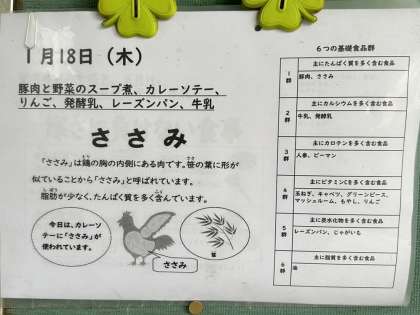 1月18日（木）
豚肉と野菜のスープ煮、カレーソテー、
りんご、発酵乳、レーズンパン、牛乳
ささみ
「ささみ」は鶏の胸の内側にある肉です。笹の葉に形が
似ていることから「ささみ」と呼ばれています。
脂肪が少なく、たんぱく質を多く含んでいます。
今日は、カレーソ
テーに「ささみ」が
使われています。
ささみ
笹
６つの基礎食品群
主にたんぱく質を多く含む食品
1群
豚肉、ささみ
主にカルシウムを多く含む食品
2群
牛乳、発酵乳
主にカロテンを多く含む食品
3群
人参、ピーマン
主にビタミンCを多く含む食品
4群
玉ねぎ、キャベツ、グリーンピース、
マッシュルーム、もやし、りんご
主に炭水化物を多く含む食品
5群
レーズンパン、じゃがいも
主に脂質を多く含む食品
6群
油